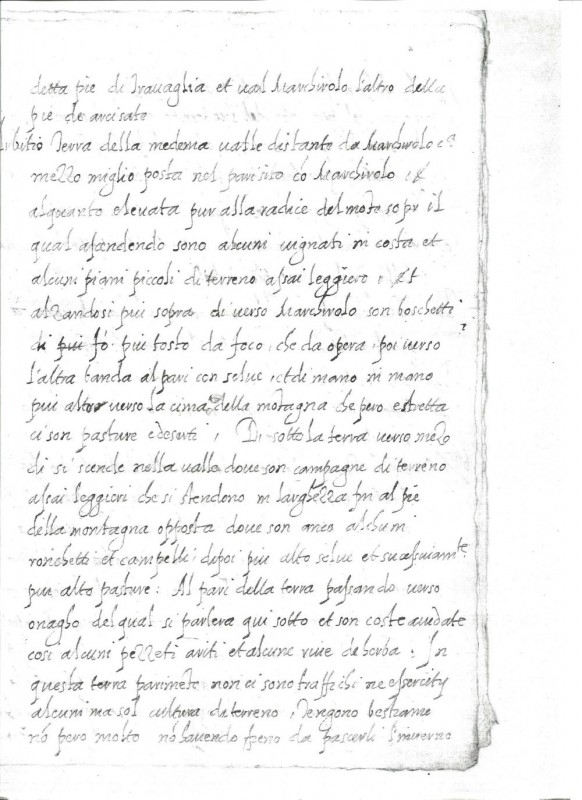 detta pie di Travaglia et val Marchirolo l'altro della
pie de arcisate
Arbitiō Terra della medema valle distante da Marchirolo c.ª
mezzo miglio posta nel parisito cō Marchirolo, &
alquanto elevata pur alla radice del mōte sopr il
qual ascendendo sono alcuni vignati in costa et
alcuni piani piccoli di terreno assai leggiero, et
alzandosi piu sopra di verso Marchirolo son boschetti
di piu fō piu tosto da foco, che da opera, poi verso
l'altra banda al pari con selve, et di mano in mano
piu alto verso la cima della mōtagna che pero e stretta
ci son pasture e deserti, Di sotto la terra verso mezo
di si scende nella valle dove son campagne di terreno
assai leggieri che si stendono in larghezza fin al pie
della montagna opposta dove son anco alchuni
ronchetti et campelli, dipoi piu alto selve et sucessivam.te
piu alto pasture: Al pari della terra passando verso
onagho del qual si parlera qui sotto et son coste avidate
cosi alcuni pezzeti aviti et alcune rive de herba: In
questa terra parimēte non ci sono traffichi ne essercity
alcuni ma sol cultura de terreno, Tengono bestiame
nō pero molto nō havendo fieno da pascerli l'inverno